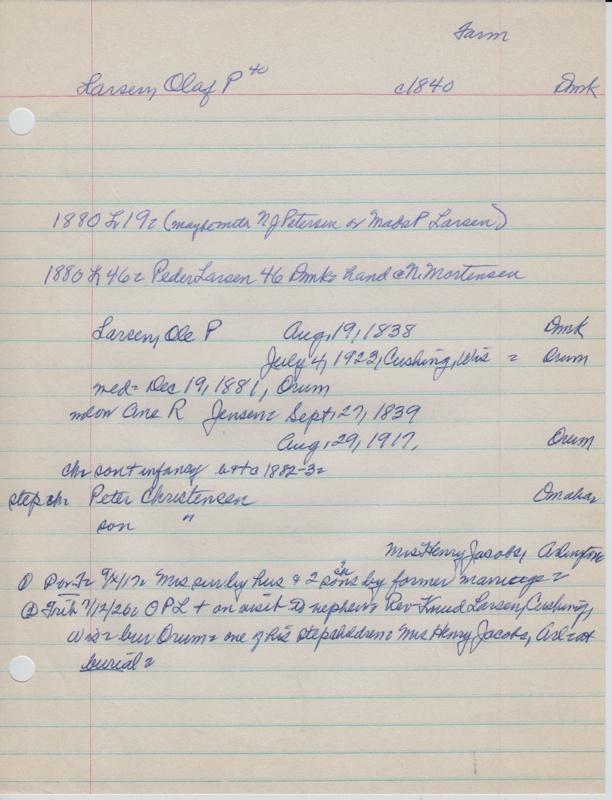 Farm
Larsen, Olaf P 40 c1840 Dmk
1880 L 192 (maybe with N J Petersen or Mads P Larsen)
1880 L 462 Peder Larsen 46 Dmk hand c N. Mortensen
Larsen, Ole P Aug, 19, 1838 Dmk
July 4, 1923, Cushing, Wis = Orum
med = Dec 19, 1881, Orum
Ane R Jensen = Sept, 27, 1839
Aug, 29, 1917, Orum
ch = son + infancy 1882-3 =
step ch = Peter Christensen Omaha
son "
Mrs Henry Jacobs, Arlington
① 9/4/17 = Mrs surv by hus & 2 sons ch by former marriage =
② Trib 7/12/26 = O P L + on visit to nephew = Rev Knud Larsen, Cushing,
Wis = bur Orum = one of his stepchildren = Mrs Henry Jacobs, Arl = at
burial =